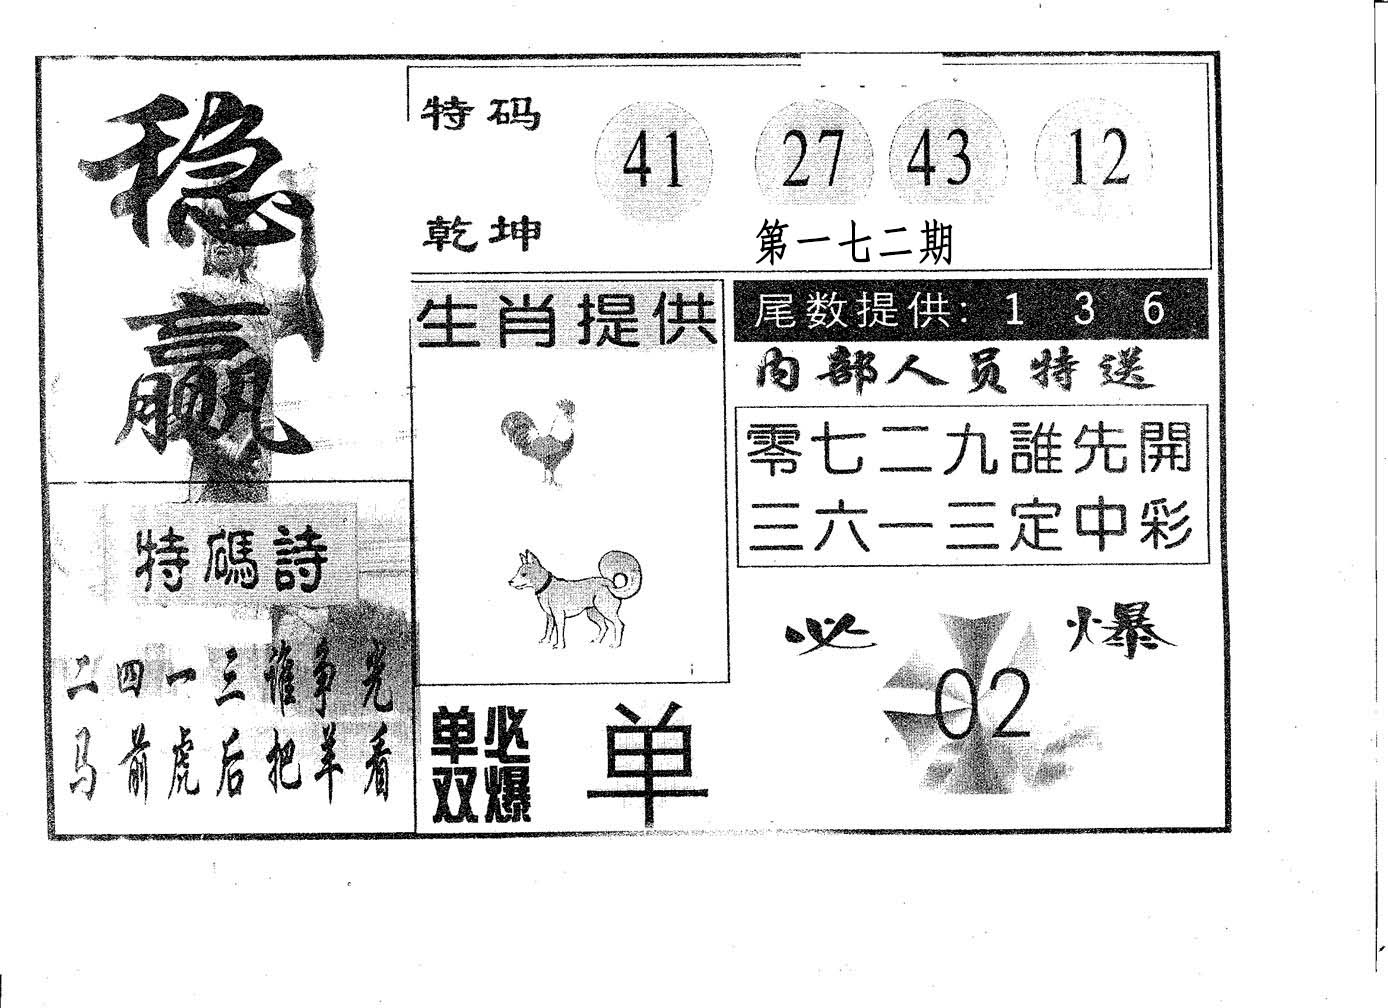 稳
赢
特码
乾坤
41 27 43 12
第一七二期
生肖提供
尾数提供: 1 3 6
内部人员特送
零七二九誰先開
三六一三定中彩
特碼詩
二四一三谁争光
马前虎后把羊看
单双
必爆
单
必爆
02